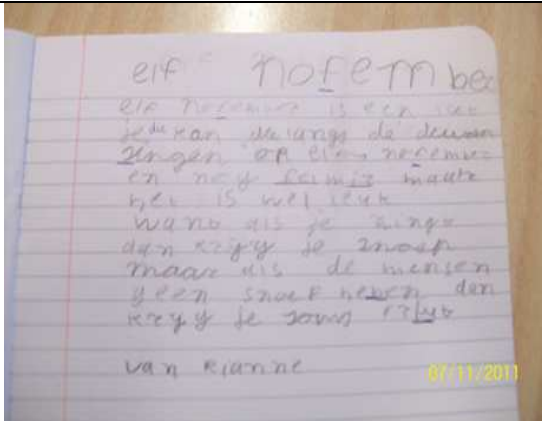 elf nofember
elf nofember is een leuk
je du kan de langs de deuren
zingen op elf nofember
en nog maar
het is wel leuk
want als je zingt
dan krijg je snoep
maar als de mensen
geen snoep heben dan
krijg je soms
van Rianne
07/11/2011